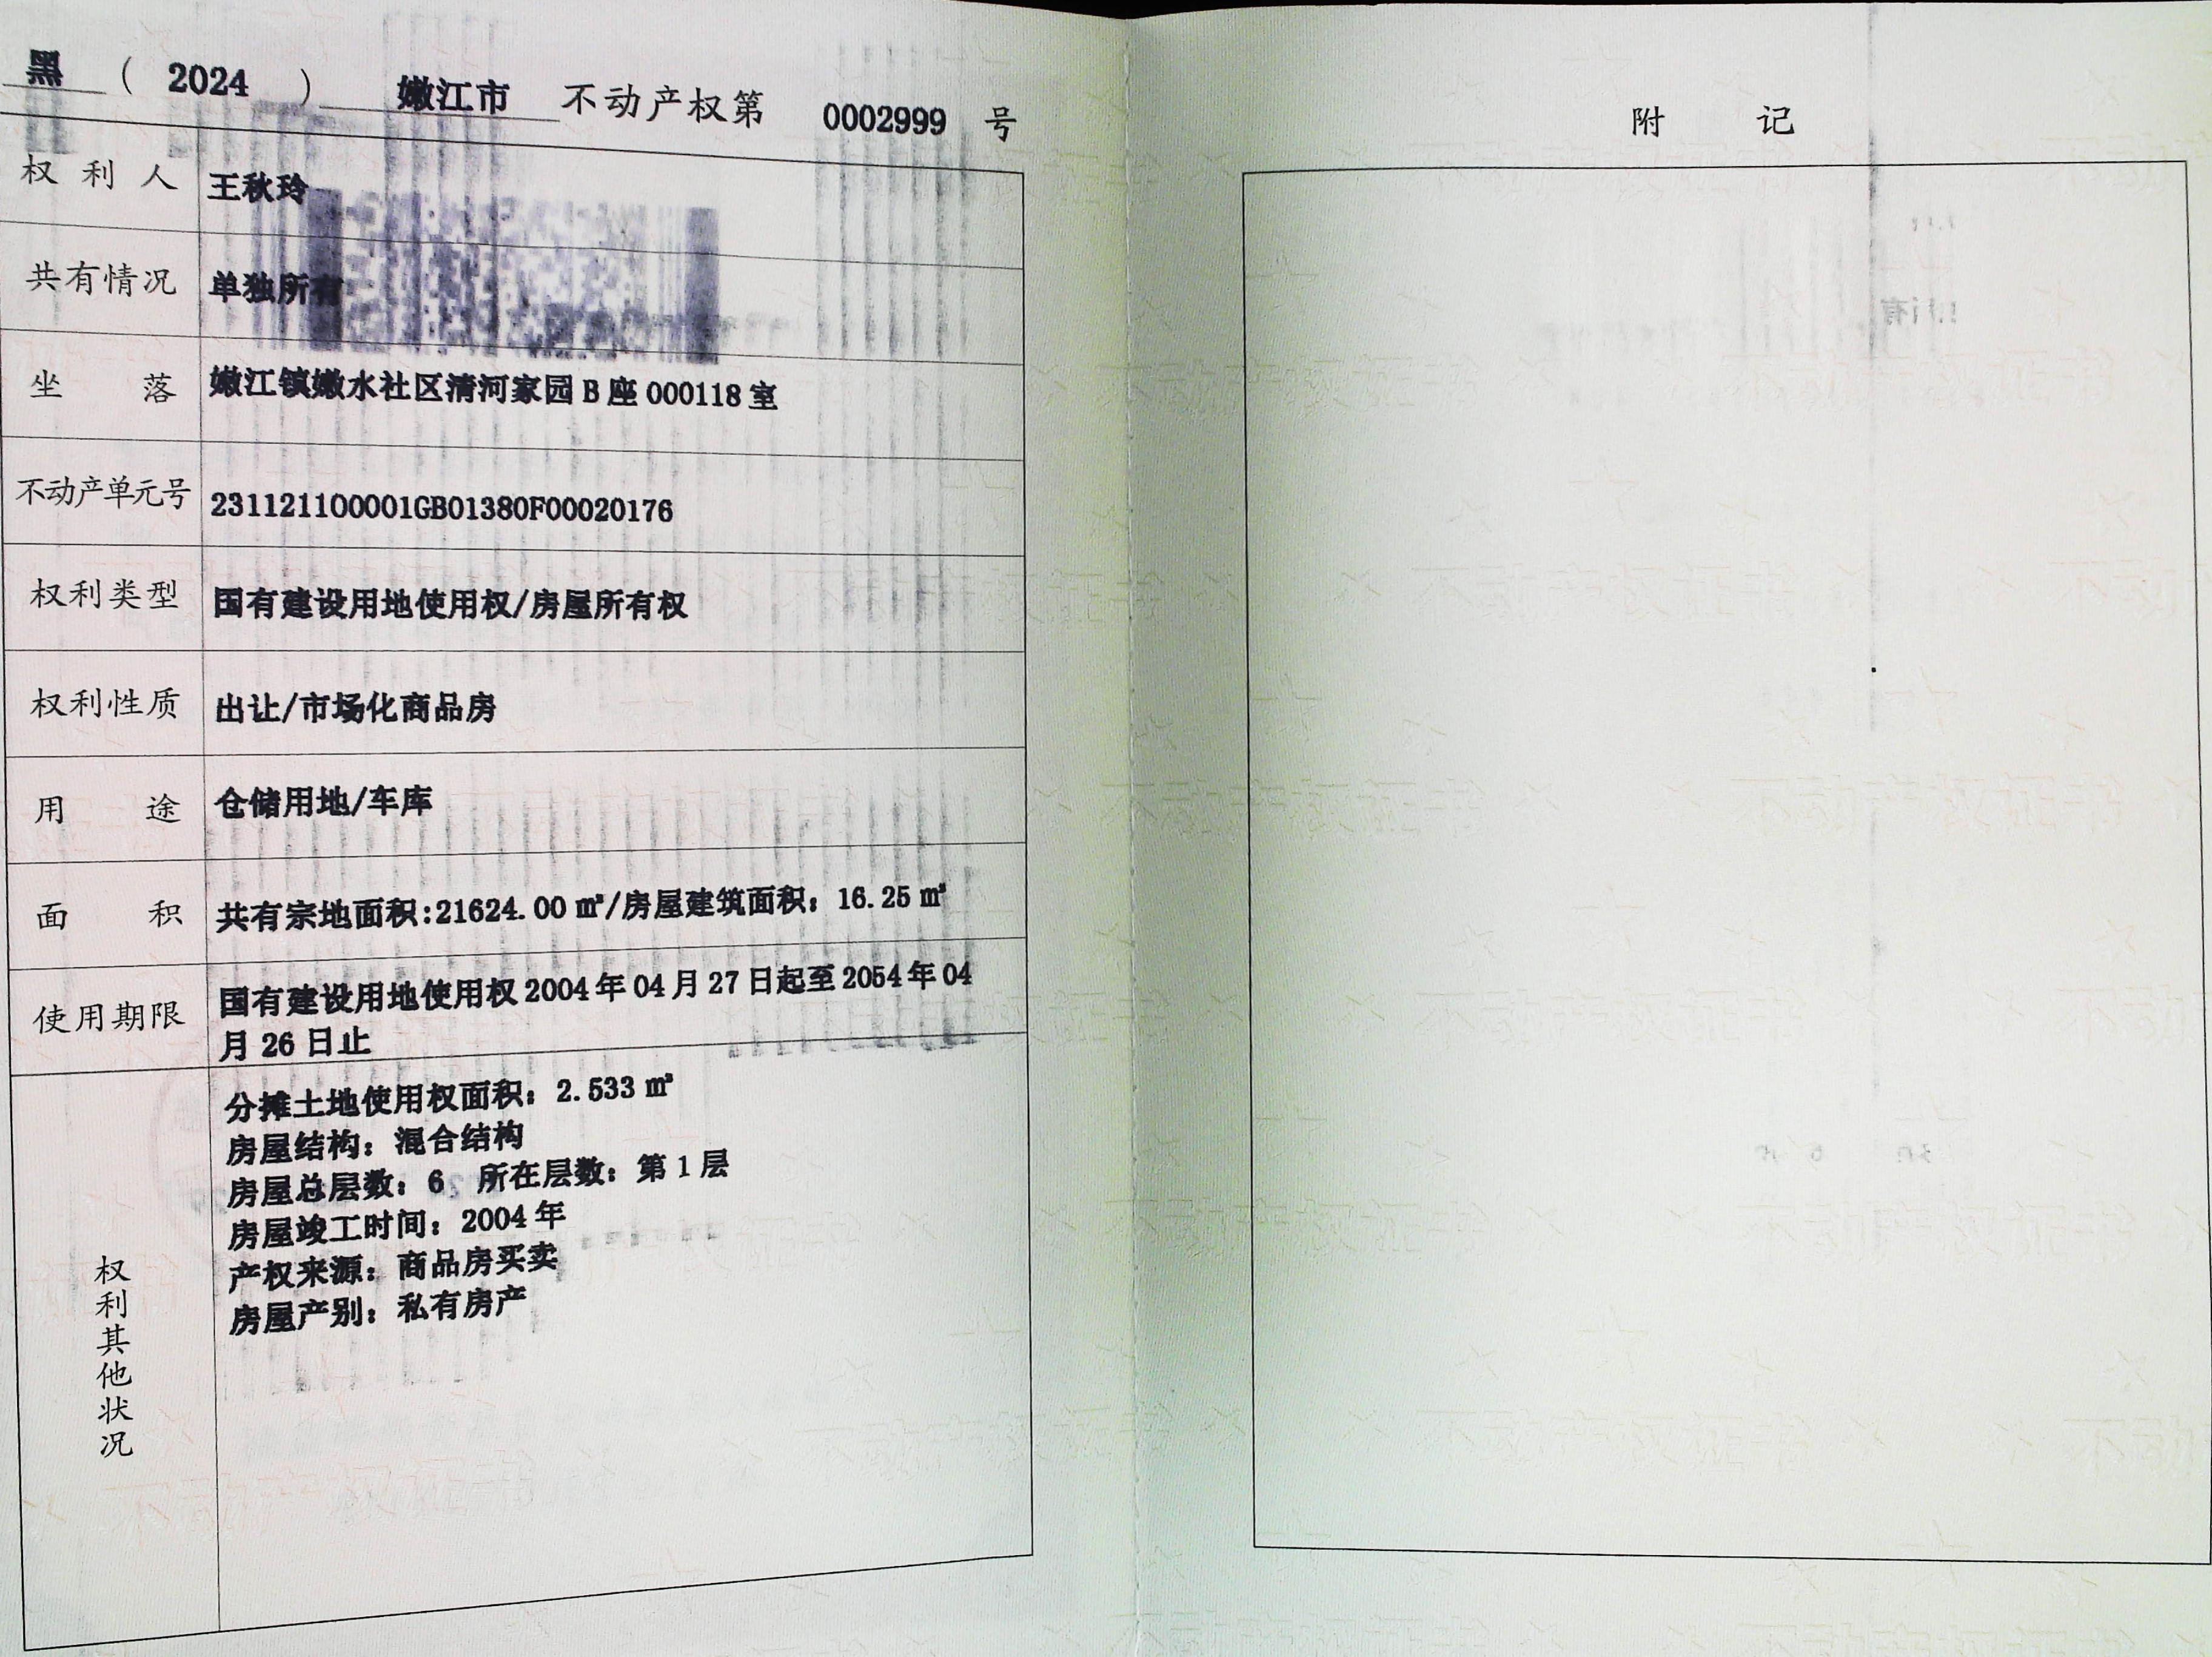 黑 ( 2024 ) 嫩江市 不动产权第 0002999 号
权利人 王秋玲
共有情况 单独所有
坐落 嫩江镇嫩水社区清河家园 B 座 000118 室
不动产单元号 231121100001GB01380F00020176
权利类型 国有建设用地使用权/房屋所有权
权利性质 出让/市场化商品房
用途 仓储用地/车库
面积 共有宗地面积:21624.00 ㎡/房屋建筑面积：16.25 ㎡
使用期限 国有建设用地使用权 2004 年 04 月 27 日起至 2054 年 04
月 26 日止
权利其他状况
分摊土地使用权面积：2.533 ㎡
房屋结构：混合结构
房屋总层数：6 所在层数：第 1 层
房屋竣工时间：2004 年
产权来源：商品房买卖
房屋产别：私有房产
附记